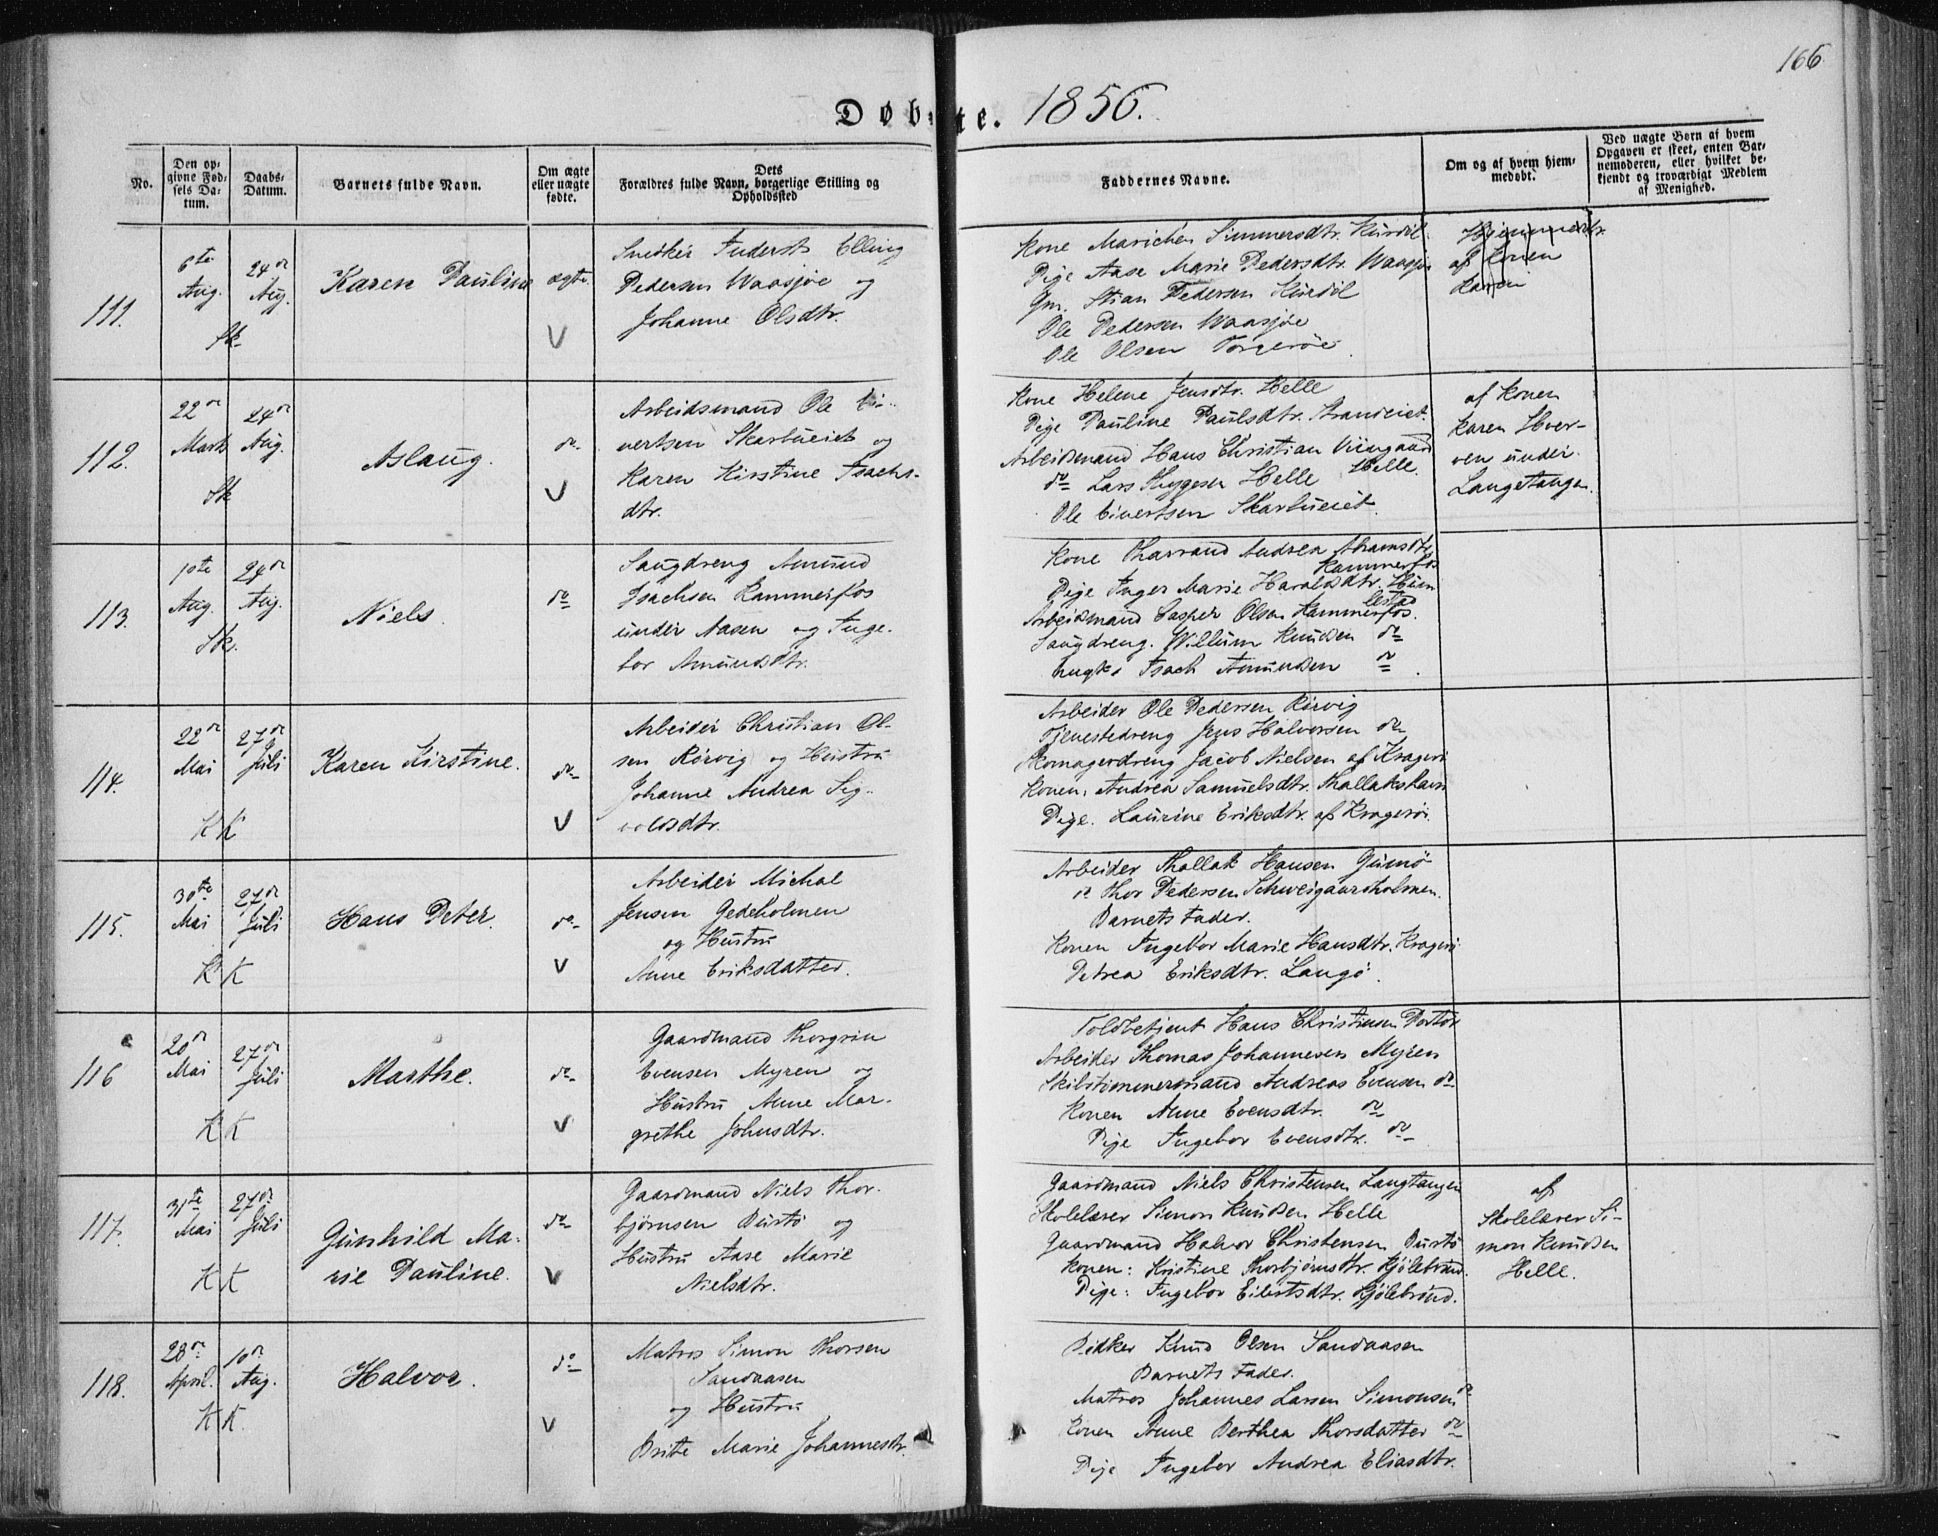 166
Døbte. 1856.
No.
Den opgivne Fødsels Datum.
Daabs-Datum.
Barnets fulde Navn.
Om ægte eller uægte fødte.
Dets Forældres fulde Navn, borgerlige Stilling og Opholdssted
Faddernes Navne.
Om og af hvem hjemmedøbt.
Ved uægte Børn af hvem Opgaven er skeet, enten Barnemoderen, eller hvilket bekjendt og troværdigt Medlem af Menighed.
111.
6te Aug.
24de Aug.
Sk
Karen Pauline
ægte.
V
Snedker Elling
Pedersen Waasjøe og
Johanne Olsdtr.
Kone Marichen Simmersdtr.
Pige Aase Marie Pedersdtr. Waasjøe
Gm. Stian Pedersen
Ole Pedersen Waasjøe
Ole Olsen
Hjemmedbt.
af Konen
Karen
112.
22de Marts
24de Aug.
Sk
Aslaug.
do
V
Arbeidsmand Ole Ei-
vertsen Skarbueiet og
Karen Kirstine Isachs-
dtr.
Kone Helene Jensdtr. Helle
Pige Pauline Paulsdtr. Strandeiet
Arbeidsmand Hans Christian Viingaard
Helle
do Lars Thygesen Helle
Ole Eivertsen Skarbueiet.
af Konen
Karen Hver-
ven under
Langetangen
113.
10te Aug.
24de Aug.
Sk.
Niels.
do
Saugdreng Amund
Isachsen Kammerfos
under Aasen og Inge-
bor Amundsdtr.
Kone Tharrand Andrea Abramsdtr.
Kammerfos
Pige Inger Marie Haraldsdtr. Hum-
lestad
Arbeidsmand Casper Olsen Kammerfos.
Saugdreng. Willum Knudsen do
Ungk. Isach Amundsen do
114.
22de Mai
27de Juli
KK
Karen Kirstine.
do
V
Arbeider Christian Ol-
sen Rörvig og Hustru
Johanne Andrea Sig-
voldsdtr.
Arbeider Ole Pedersen Rörvig
Tjenestedreng Jens Halvorsen do
Skomagerdreng Jacob Nielsen af Kragerö
Konen: Andrea Samuelsdtr. Thallakshavn
Pige. Laurine Eriksdtr. af Kragerö.
115.
30te Mai
27de Juli
KK
Hans Peter.
do
V
Arbeider Michal
Jensen Gedeholmen
og Hustru
Anne Eriksdatter.
Arbeider Thallak Hansen Gumö
do Thor Pedersen Schweigaardsholmen
Barnets Fader.
Konen Ingebor Marie Hansdtr. Kragerö
Petrea Eriksdtr. Langö.
116
20de Mai
27de Juli
KK
Marthe.
do
V
Gaardmand Thorgrim
Evensen Myren og
Hustru Anne Mar-
grethe Johnsdtr.
Toldbetjent Hans Christensen Portör
Arbeider Thomas Johannesen Myren
Skibstömmermand Andreas Evensen do
Konen Anne Evensdtr. do
Pige Ingebor Evensdtr. do
117.
31te Mai
27de Juli
KK
Gunhild Ma-
rie Pauline.
do
V
Gaardmand Niels Thor-
björnsen Burtö og
Hustru Aase Marie
Nielsdtr.
Gaardmand Niels Christensen Langtangen
Skolelærer Simon Knudsen Helle
Gaardmand Halvor Christensen Burtö
Konen: Kristine Thorbjörnsdtr. Kjölebrönd.
Pige: Ingebor Eilertsdtr. Kjölebrönd.
af
Skolelærer Si-
mon Knudsen
Helle.
118.
28de April.
10de Aug.
KK.
Halvor.
do
V
Matros Simon Thorsen
Sandaasen
og Hustru
Brite Marie Johannesdtr.
Knud Olsen Sandaasen
Barnets Fader.
Matros Johannes Larsen Simonsen do
Konen Anne Berthea Thorsdatter do
Pige Ingebor Andrea Eliasdtr.